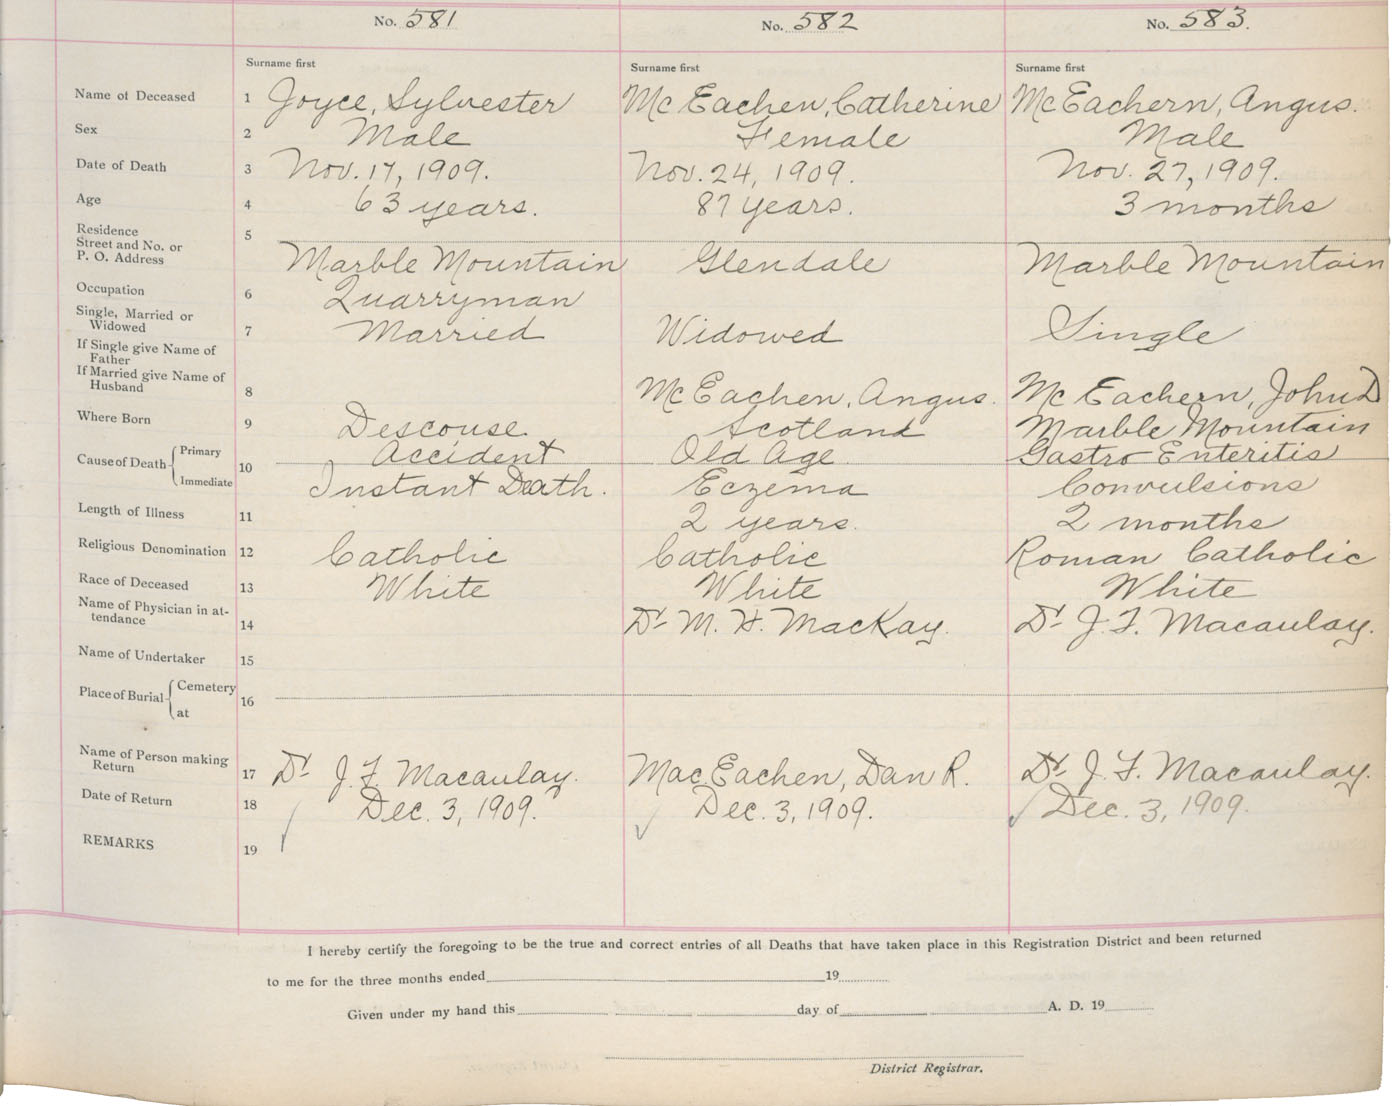 No. 581 No. 582 No. 583.
Surname first Surname first Surname first
Name of Deceased 1 Joyce, Sylvester McEachen, Catherine McEachern, Angus.
Sex 2 Male Female Male
Date of Death 3 Nov. 17, 1909. Nov. 24, 1909. Nov. 27, 1909.
Age 4 63 years. 87 years. 3 months
Residence
Street and No. or 5
P. O. Address Marble Mountain Glendale Marble Mountain
Occupation 6 Quarryman
Single, Married or
Widowed 7 Married Widowed Single
If Single give Name of
Father
If Married give Name of
Husband 8 McEachen, Angus. McEachern, John D
Where Born 9 Descouse. Scotland Marble Mountain
Cause of Death Primary Accident Old Age Gastro Enteritis
10
Immediate Instant Death. Eczema Convulsions
Length of Illness 11 2 years. 2 months
Religious Denomination 12 Catholic Catholic Roman Catholic
Race of Deceased 13 White White White
Name of Physician in at-
tendance 14 Dr M. H. MacKay. Dr J. F. Macaulay.
Name of Undertaker 15
Place of Burial Cemetery
16
at
Name of Person making
Return 17 Dr J. F. Macaulay. MacEachen, Dan R. Dr J. F. Macaulay.
Date of Return 18 Dec. 3, 1909. Dec. 3, 1909. Dec. 3, 1909.
REMARKS 19
I hereby certify the foregoing to be the true and correct entries of all Deaths that have taken place in this Registration District and been returned
to me for the three months ended 19
Given under my hand this day of A. D. 19
District Registrar.